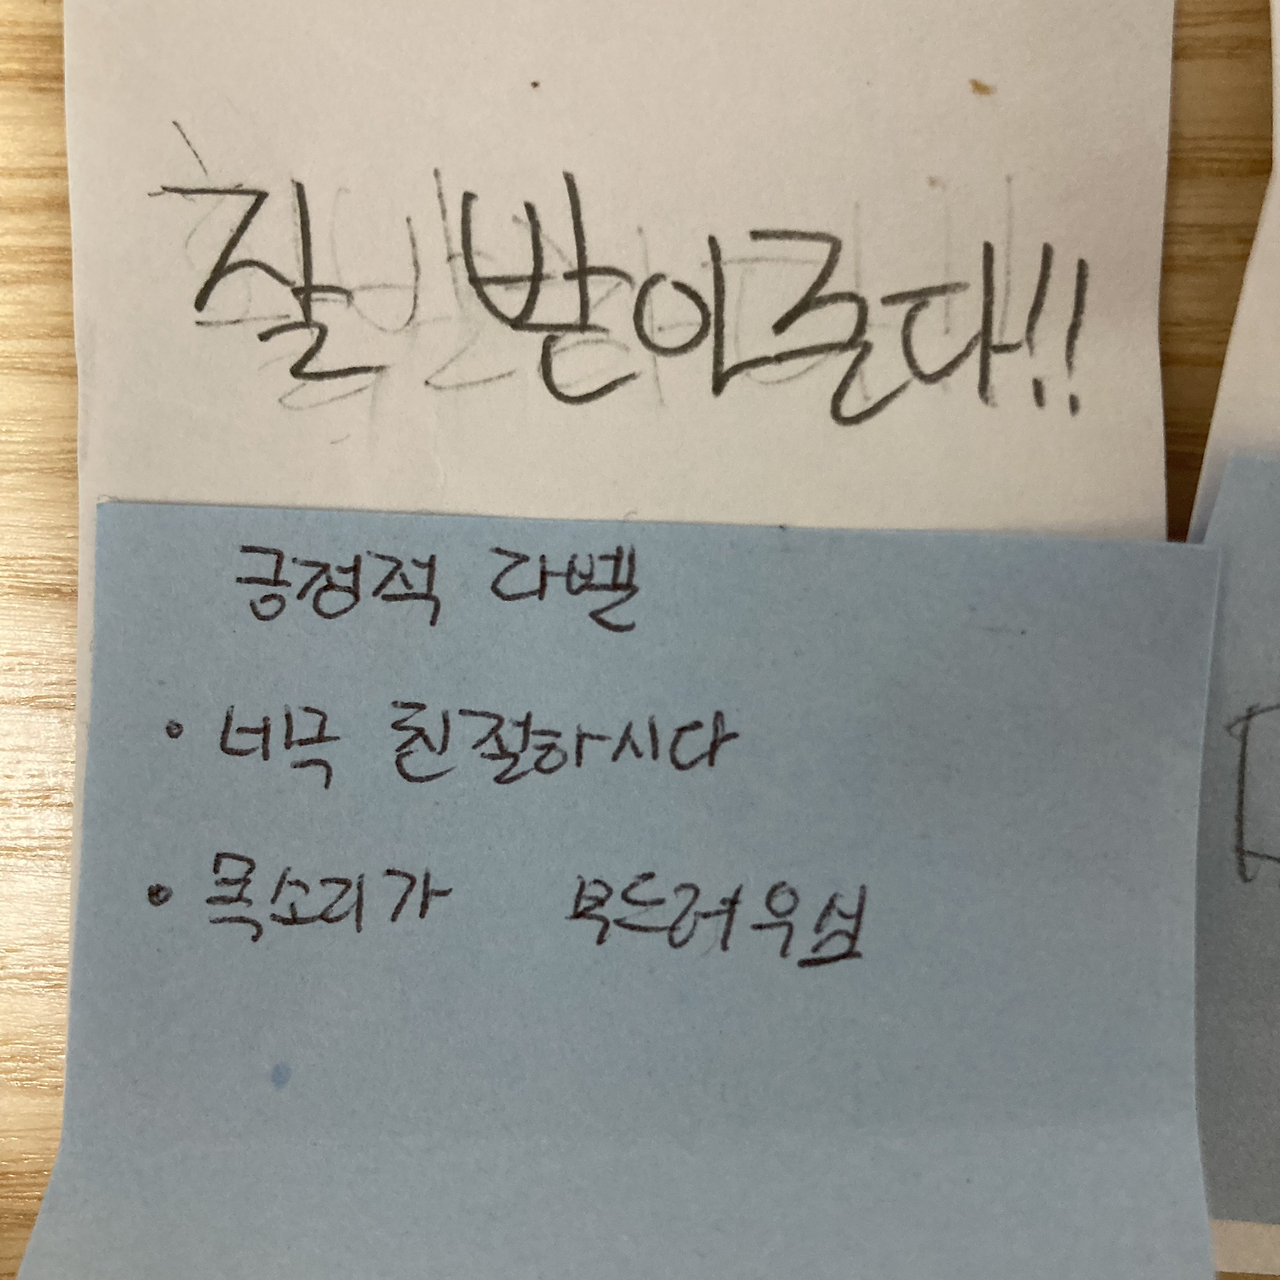 잘 받아준다!!
긍정적 라벨
• 너무 친절하시다
• 목소리가 부드러우심